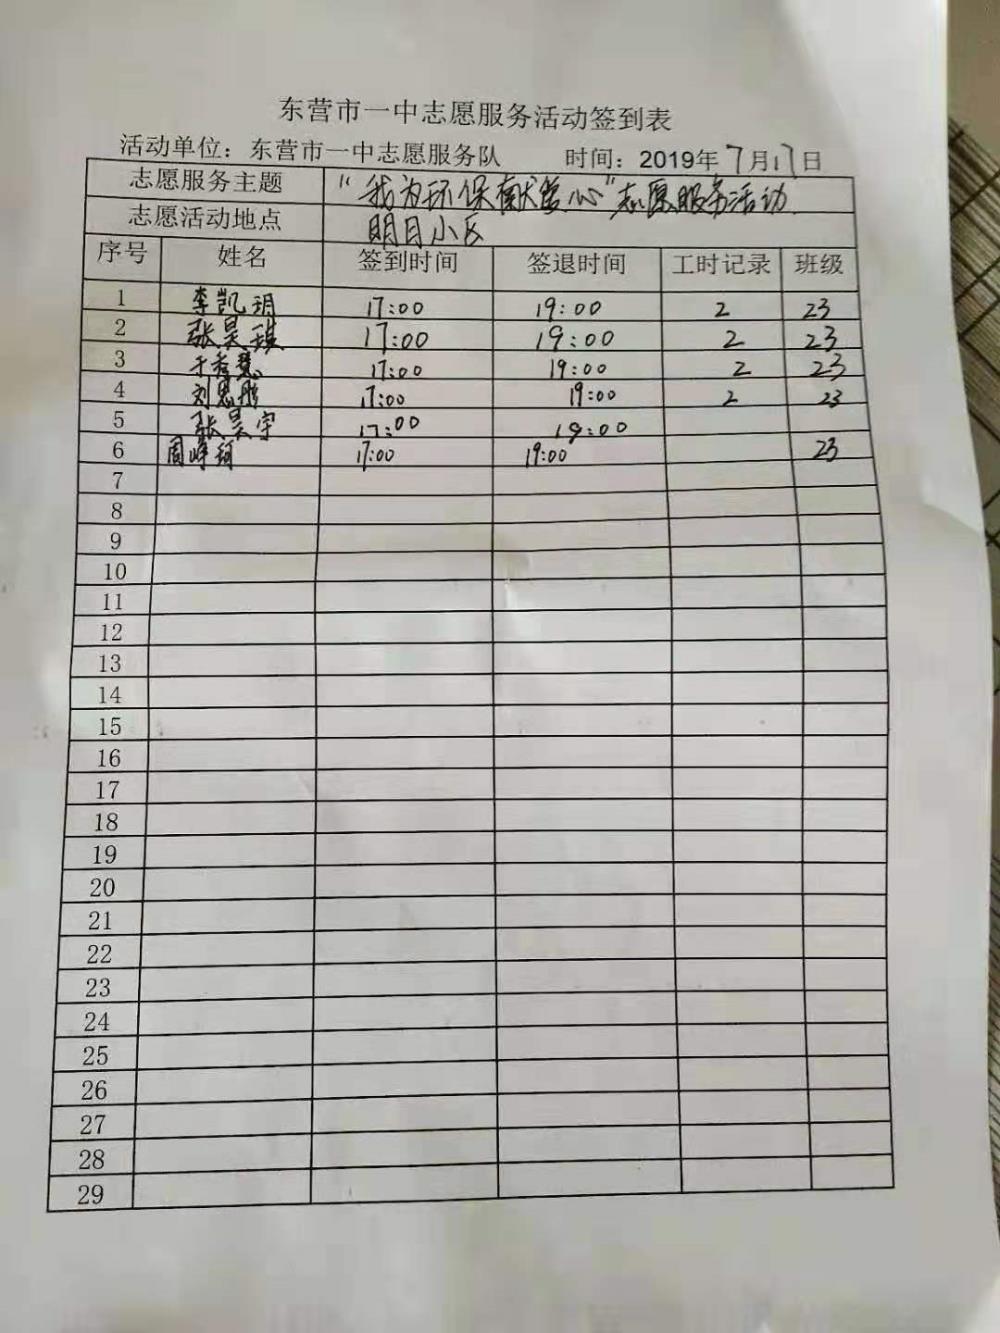 东营市一中志愿服务活动签到表
活动单位：东营市一中志愿服务队 时间：2019年7月17日
志愿服务主题 “我为环保献爱心”志愿服务活动
志愿活动地点 明月小区
序号 姓名 签到时间 签退时间 工时记录 班级
1 李凯玥 17:00 19:00 2 23
2 张昊琪 17:00 19:00 2 23
3 于秀慧 17:00 19:00 2 23
4 刘思彤 17:00 19:00 2 23
5 张昊宇 17:00 19:00
6 周峥珂 17:00 19:00 23
7
8
9
10
11
12
13
14
15
16
17
18
19
20
21
22
23
24
25
26
27
28
29